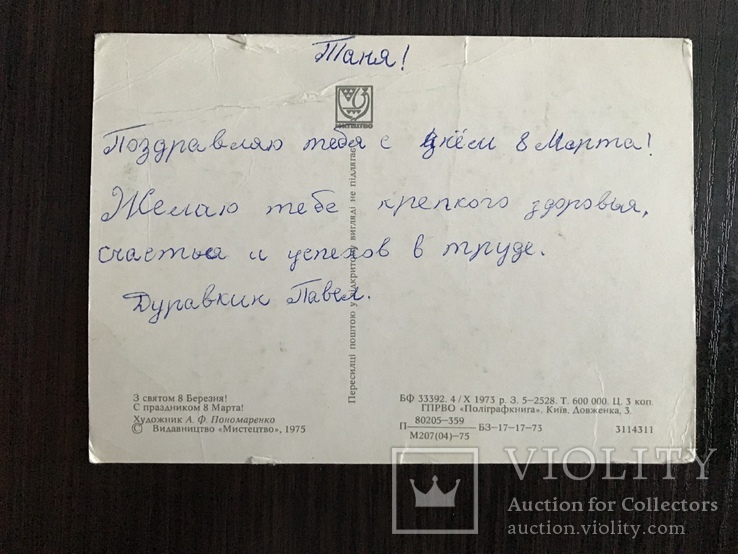 Таня!
МИСТЕЦТВО
Поздравляю тебя с днём 8 Марта!
Желаю тебе крепкого здоровья,
счастья и успехов в труде.
Дуравкин Павел.
Пересилці поштою у відкритому вигляді не підлягає
З святом 8 Березня!
С праздником 8 Марта!
Художник А. Ф. Пономаренко
© Видавництво «Мистецтво», 1975
БФ 33392. 4/X 1973 р. З. 5–2528. Т. 600 000. Ц. 3 коп.
ГПРВО «Поліграфкнига». Київ. Довженка, 3.
П 80205–359 / М207(04)–75 БЗ–17–17–73 3114311
VIOLITY
Auction for Collectors
auction.violity.com